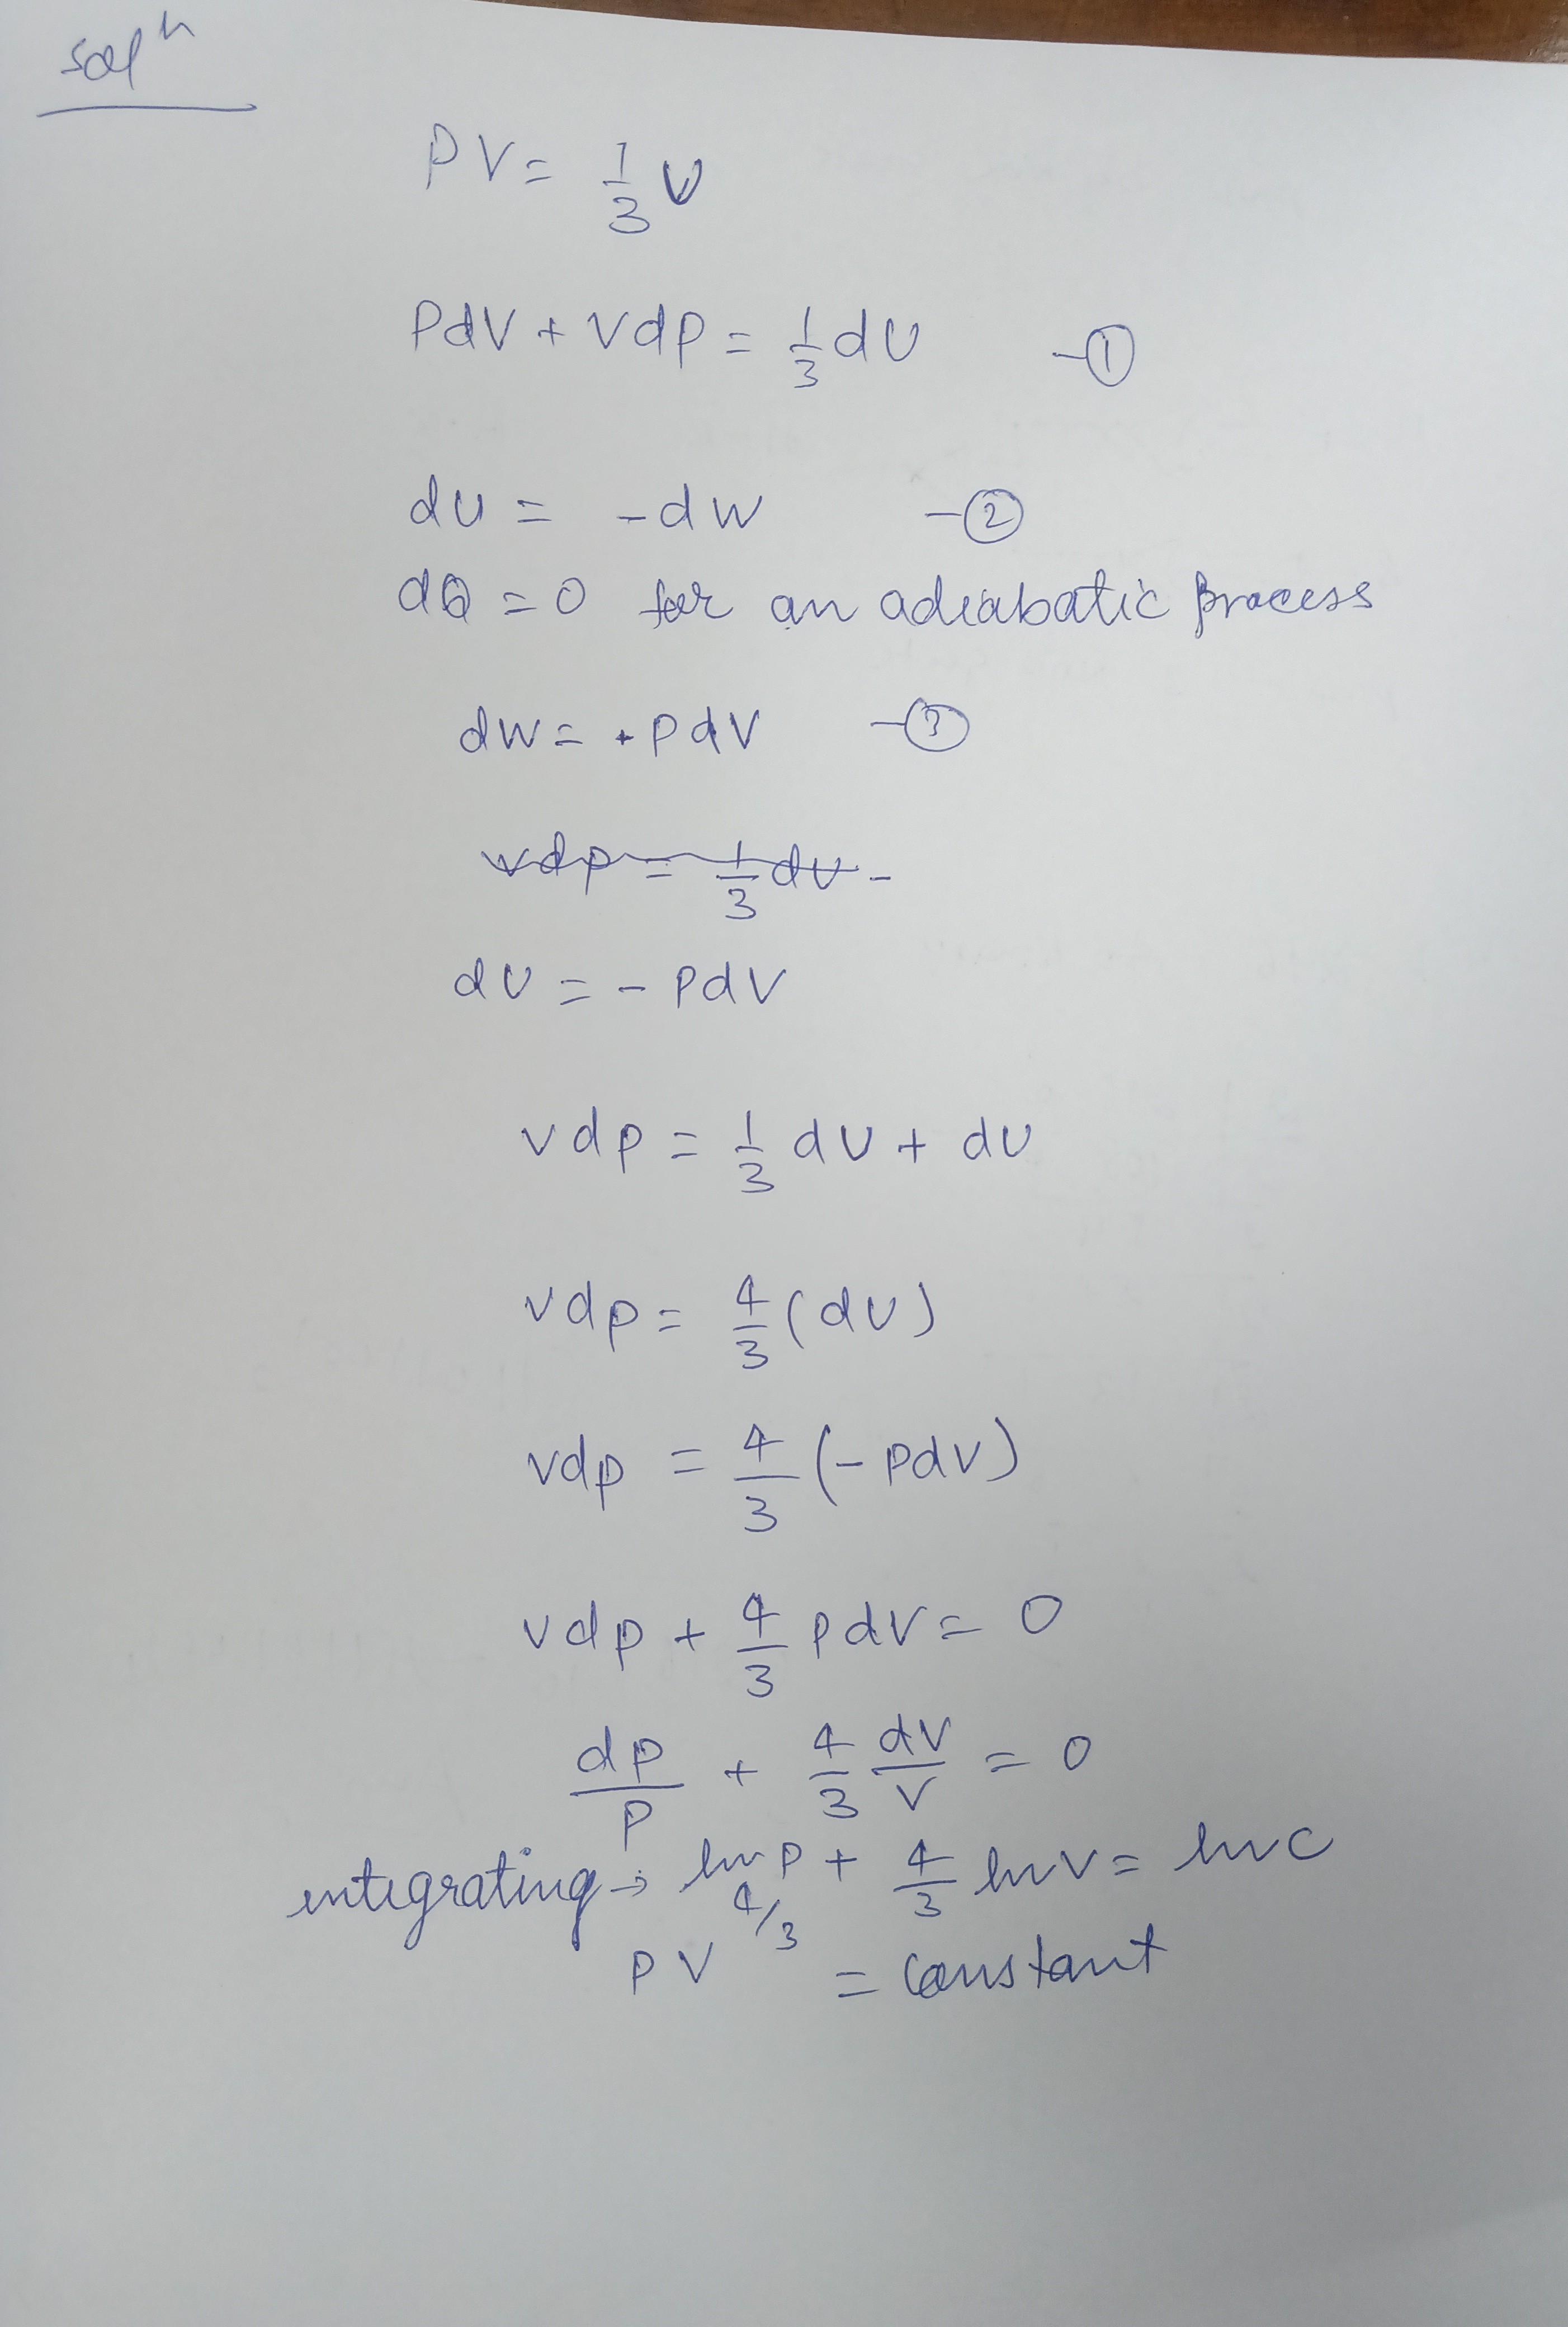 Solⁿ
PV = 1/3 U
PdV + Vdp = 1/3 dU -①
dU = -dW -②
dQ = 0 for an adiabatic process
dW = +PdV -③
Vdp = 1/3 dU -
dU = - PdV
Vdp = 1/3 dU + dU
Vdp = 4/3 (dU)
Vdp = 4/3 (- PdV)
Vdp + 4/3 PdV = 0
dp/P + 4/3 dV/V = 0
integrating → ln P + 4/3 ln V = ln C
PV^4/3 = constant